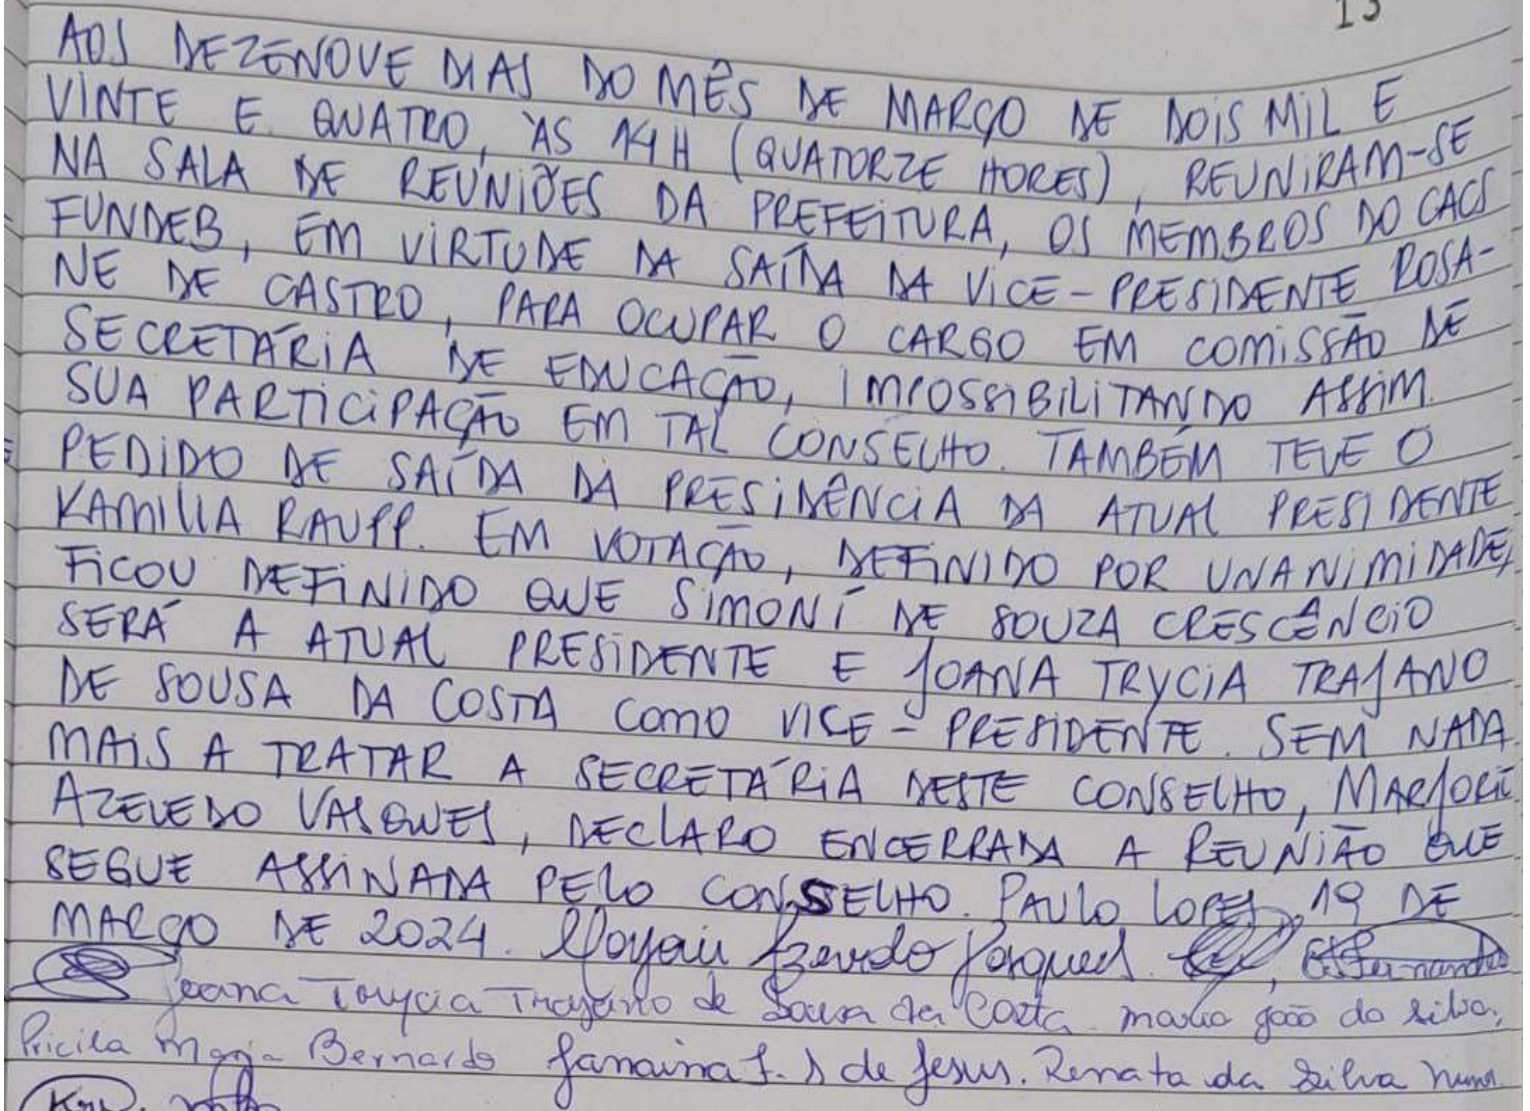 13
AOS DEZENOVE DIAS DO MÊS DE MARÇO DE DOIS MIL E
VINTE E QUATRO, ÀS 14H (QUATORZE HORES), REUNIRAM-SE
NA SALA DE REUNIÕES DA PREFEITURA, OS MEMBROS DO CACS
FUNDEB, EM VIRTUDE DA SAÍDA DA VICE-PRESIDENTE ROSA-
NE DE CASTRO, PARA OCUPAR O CARGO EM COMISSÃO DE
SECRETÁRIA DE EDUCAÇÃO, IMPOSSIBILITANDO ASSIM
SUA PARTICIPAÇÃO EM TAL CONSELHO. TAMBÉM TEVE O
PEDIDO DE SAÍDA DA PRESIDÊNCIA DA ATUAL PRESIDENTE
KAMILLA RAUPP. EM VOTAÇÃO, DEFINIDO POR UNANIMIDADE,
FICOU DEFINIDO QUE SIMONI DE SOUZA CRESCÊNCIO
SERÁ A ATUAL PRESIDENTE E JOANA TRYCIA TRAJANO
DE SOUSA DA COSTA COMO VICE-PRESIDENTE. SEM NADA
MAIS A TRATAR A SECRETÁRIA DESTE CONSELHO, MARJORIE
AZEVEDO VASQUES, DECLARO ENCERRADA A REUNIÃO QUE
SEGUE ASSINADA PELO CONSELHO. PAULO LOPES, 19 DE
MARÇO DE 2024. Azevedo Vasques
Joana Trycia Trajano de Sousa da Costa. Maria João da Silva,
Pricila Maria Bernardo Janaina J. S de Jesus. Renata da Silva Nunes